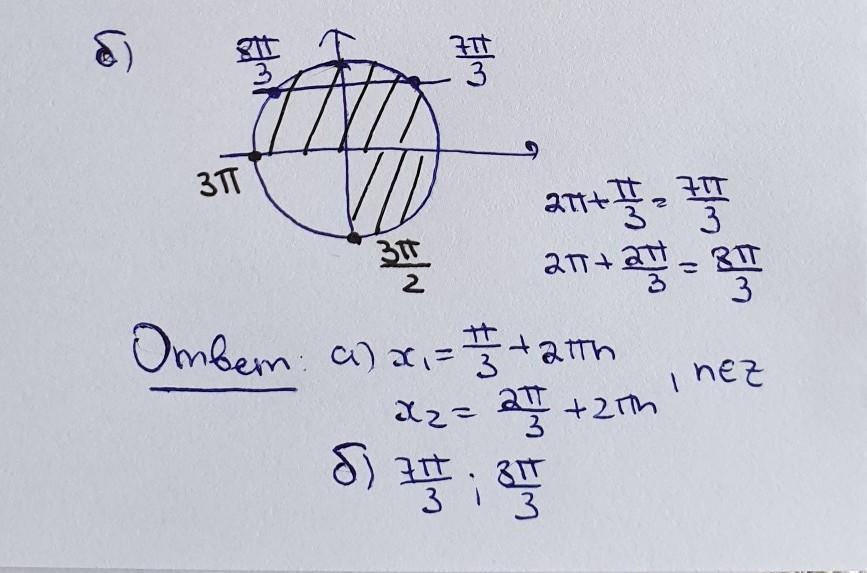 б)
8π/3
7π/3
3π
3π/2
2π+π/3=7π/3
2π+2π/3=8π/3
Ответ: а) x₁=π/3+2πn
x₂=2π/3+2πn, n∈z
б) 7π/3; 8π/3